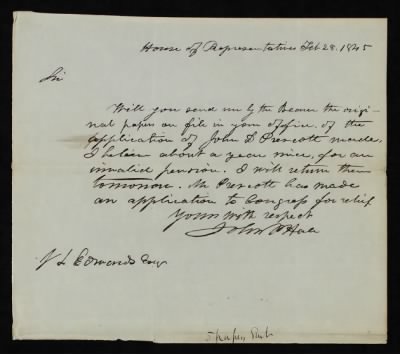 House of Representatives Feb 28. 1845
Sir
Will you send me by the Bearer the origi-
nal papers on file in your office. of the
application of John S Prescott made,
I believe about a year since, for an
invalid pension. I will return them
tomorrow. Mr Prescott has made
an application to Congress for relief
Yours with respect
John P Hale
J L Edwards Esqr
5 papers